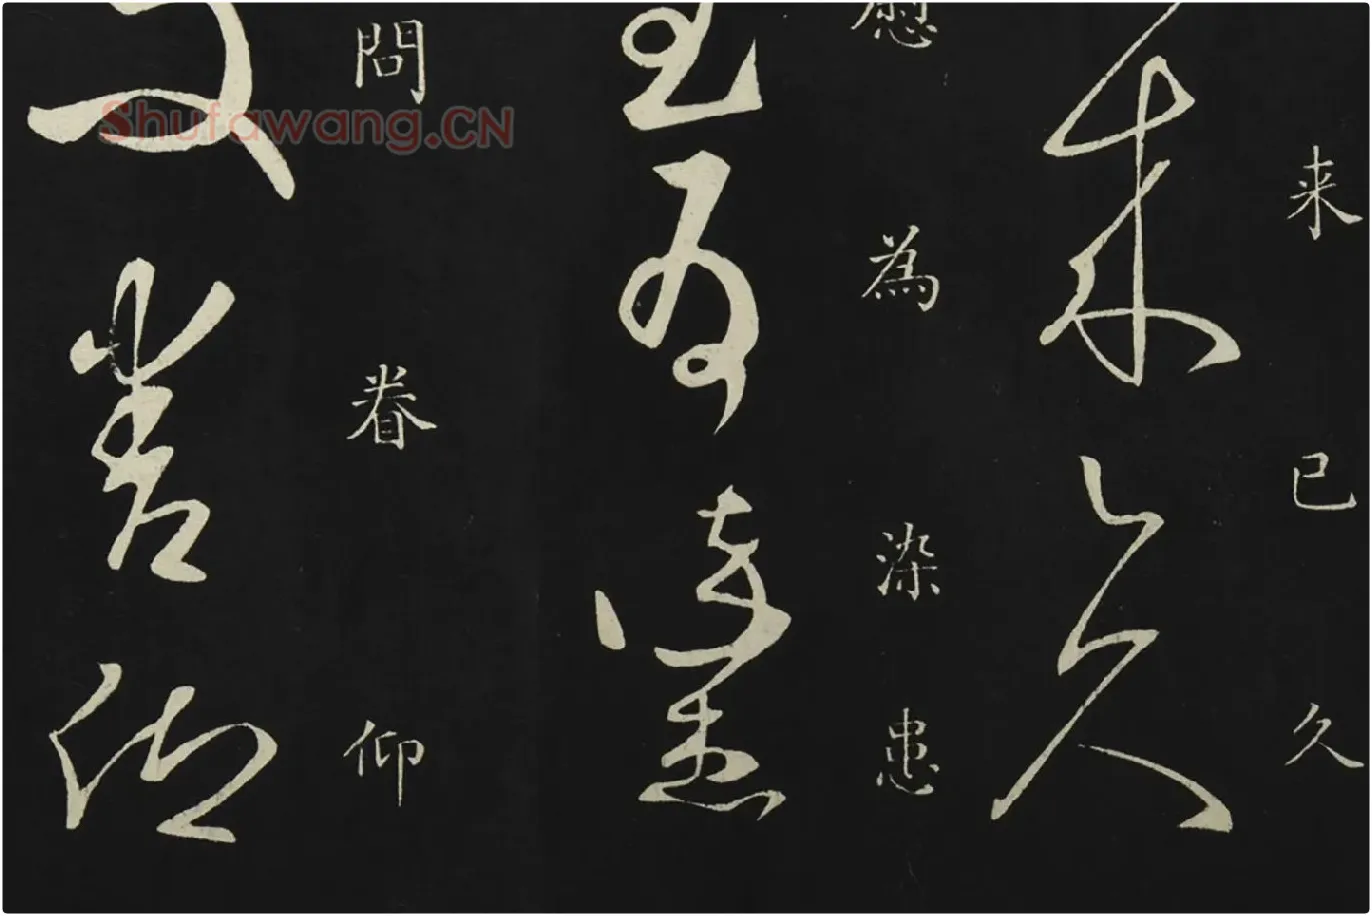 来已久
慰為染患
問眷仰
Shufawang.CN